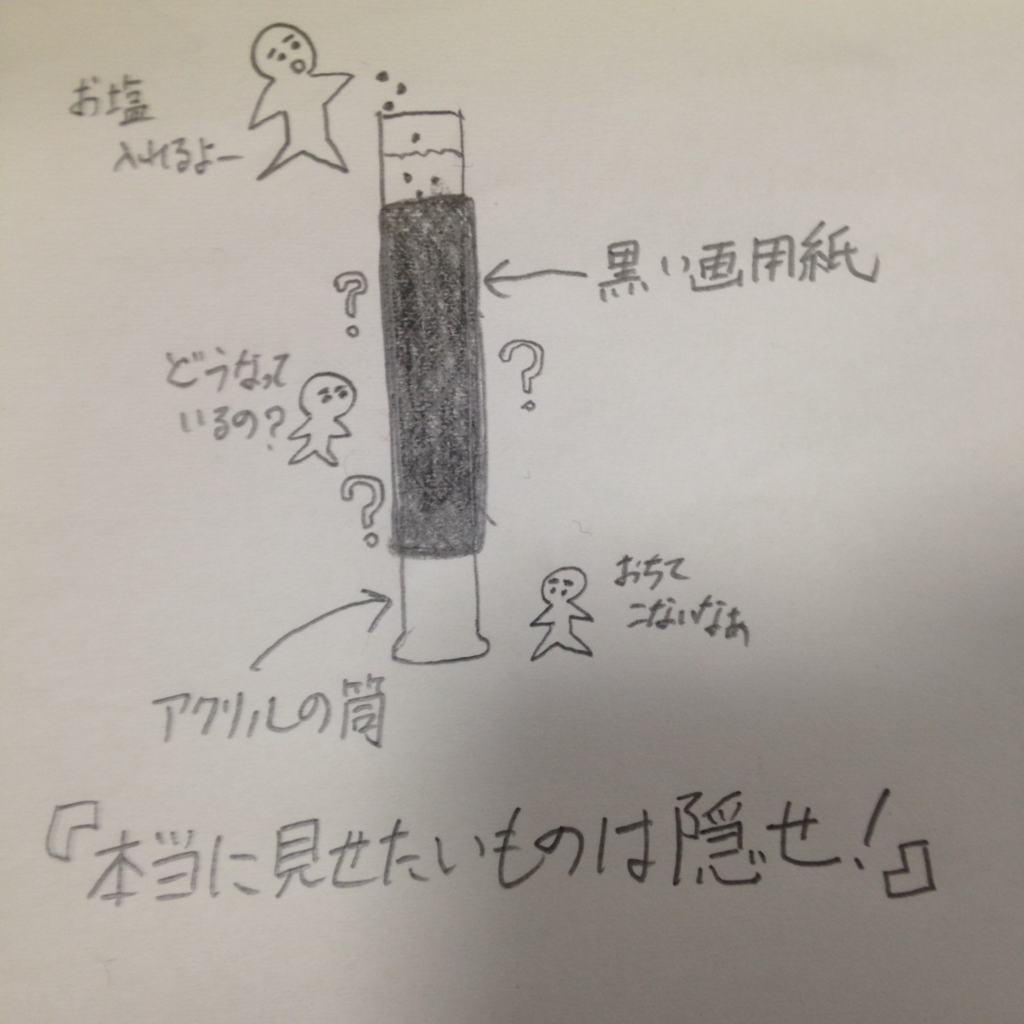 お塩
入れるよー
黒い画用紙
?
?
どうなって
いるの?
?
おちて
こないなぁ
アクリルの筒
『本当に見せたいものは隠せ!』